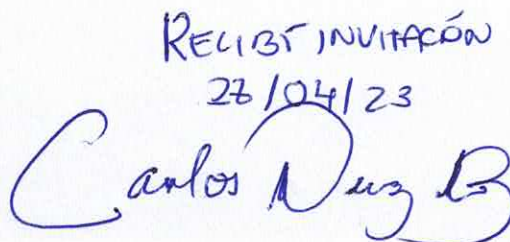 RECIBÍ INVITACIÓN
28/04/23
Carlos Diaz B